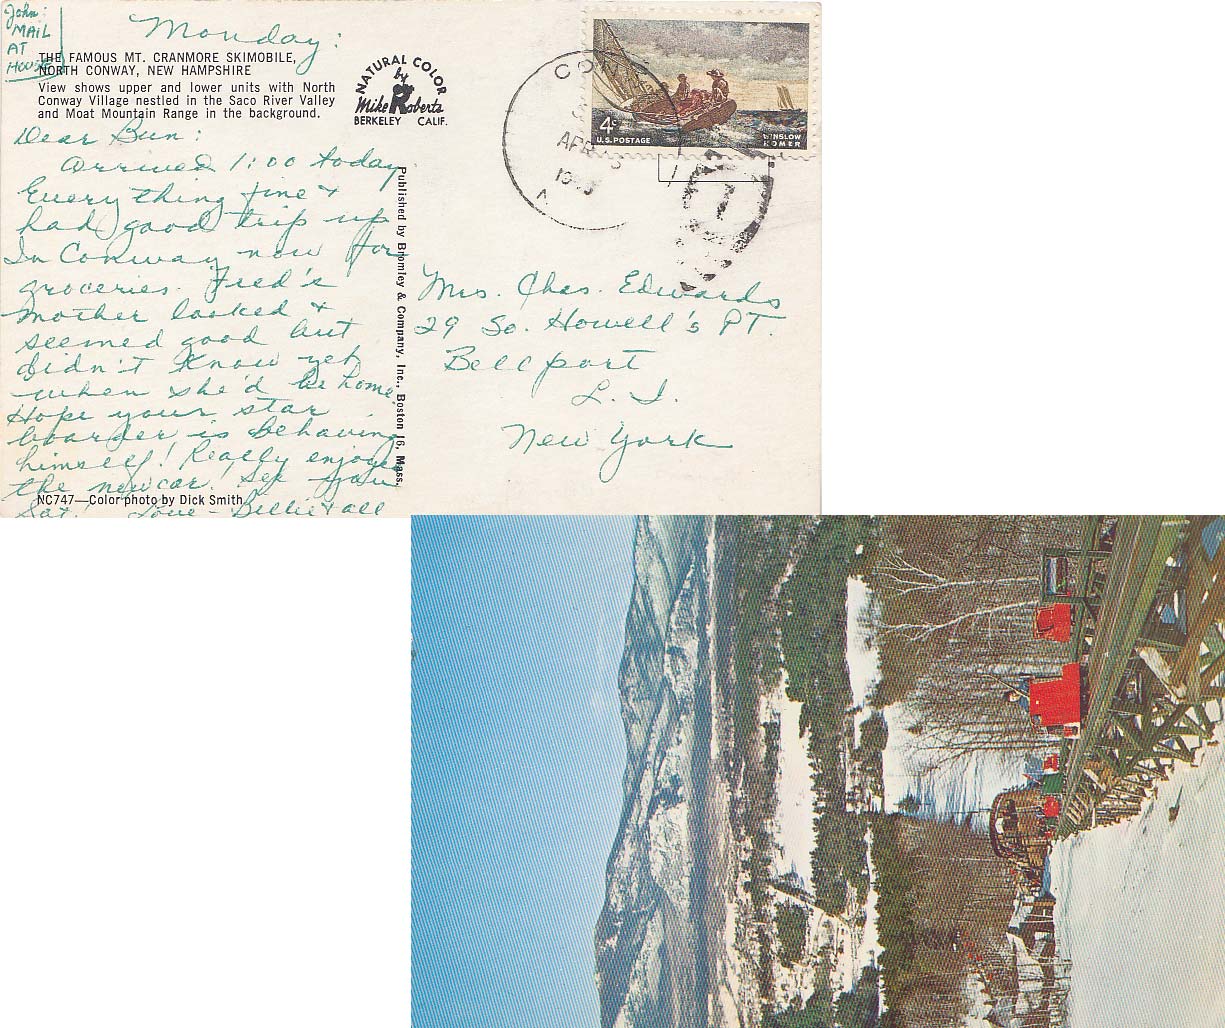 John:
MAIL
AT
HOUSE
Monday:
THE FAMOUS MT. CRANMORE SKIMOBILE,
NORTH CONWAY, NEW HAMPSHIRE
View shows upper and lower units with North
Conway Village nestled in the Saco River Valley
and Moat Mountain Range in the background.
Dear Bun:
Arrived 1:00 today
Everything fine &
had good trip up
In Conway now for
groceries. Fred's
Mother looked &
seemed good but
didn't know yet
when she'd be home.
Hope your star
boarder is behaving
himself! Really enjoyed
the new car! See you
Sat. Love - Billie & all
NC747—Color photo by Dick Smith
NATURAL COLOR
by
Mike Roberts
BERKELEY CALIF.
Published by Bromley & Company, Inc., Boston 16, Mass.
4¢
U.S. POSTAGE
WINSLOW
HOMER
APR
Mrs. Chas. Edwards
29 So. Howell's PT.
Bellport
L. I.
New York